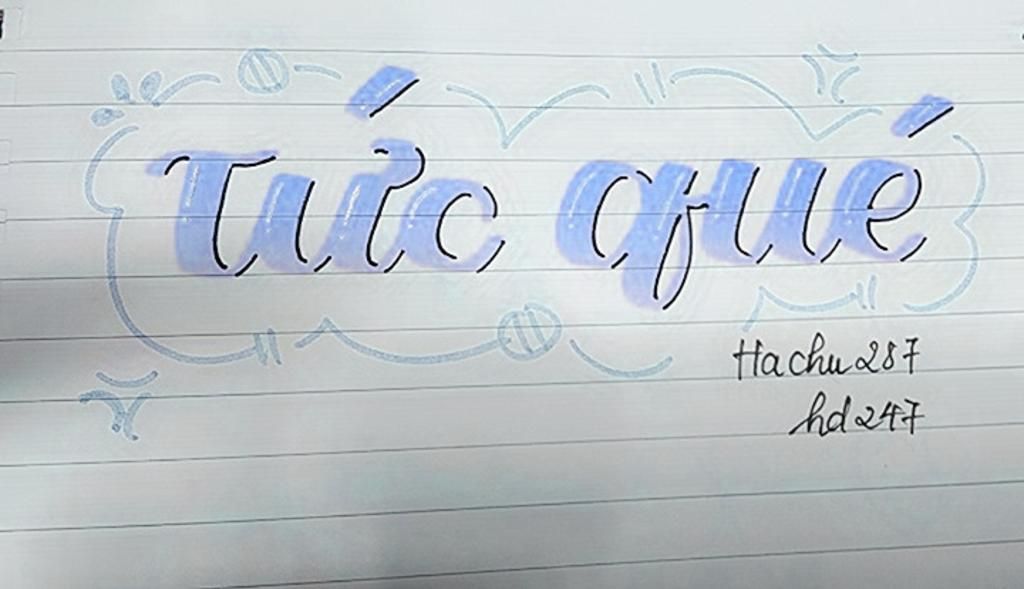 Tức qué
Hachu287
hd247